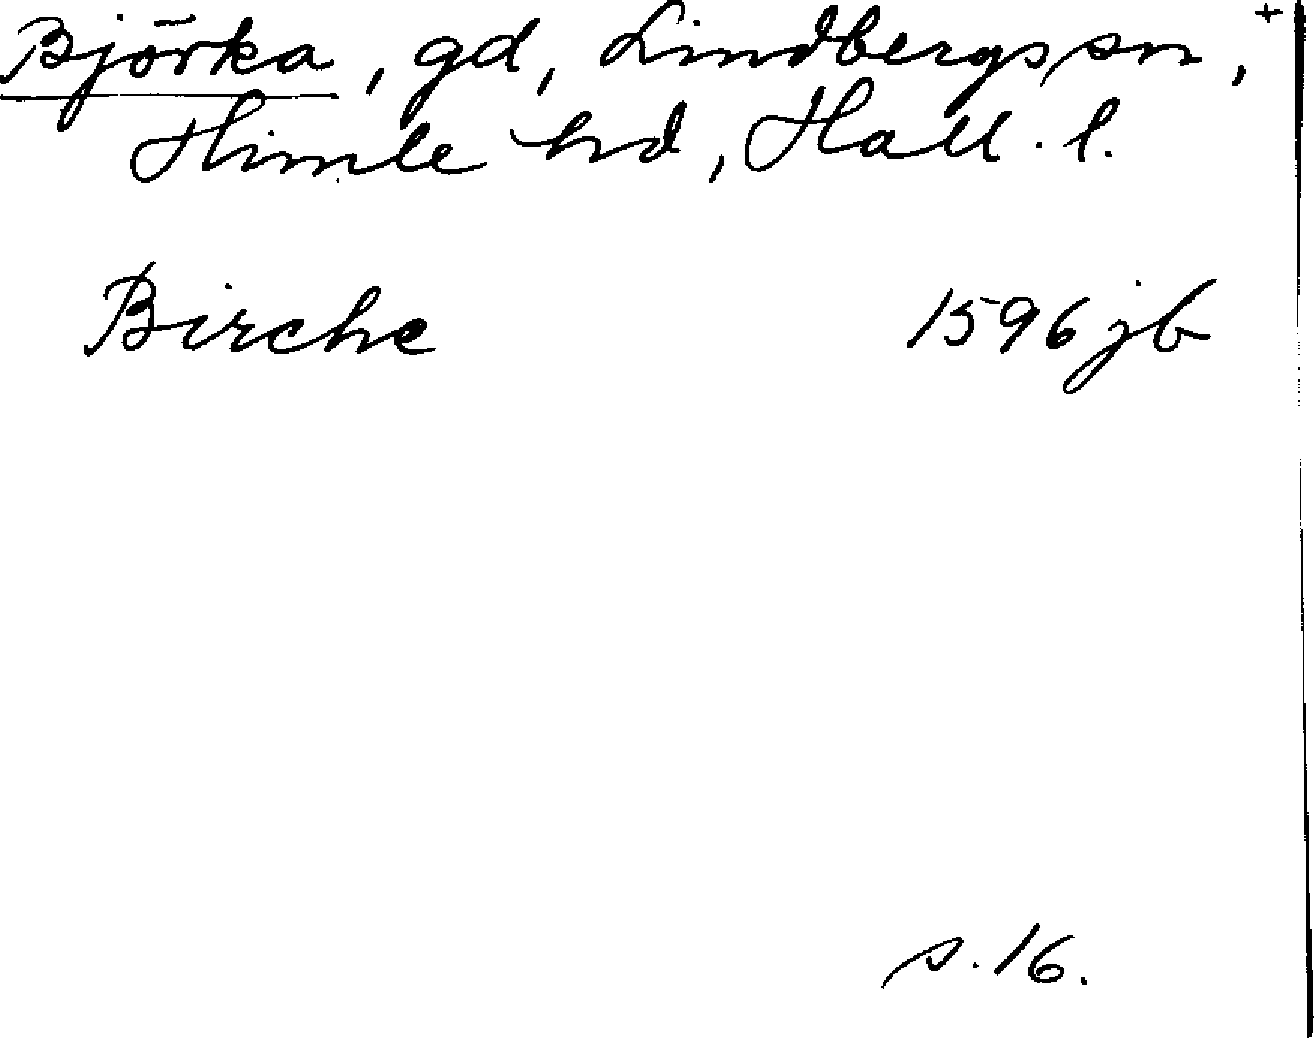 Björka, gd, Lindbergs sn, +
Himle hd, Hall. l.
Birche 1596 jb
s. 16.